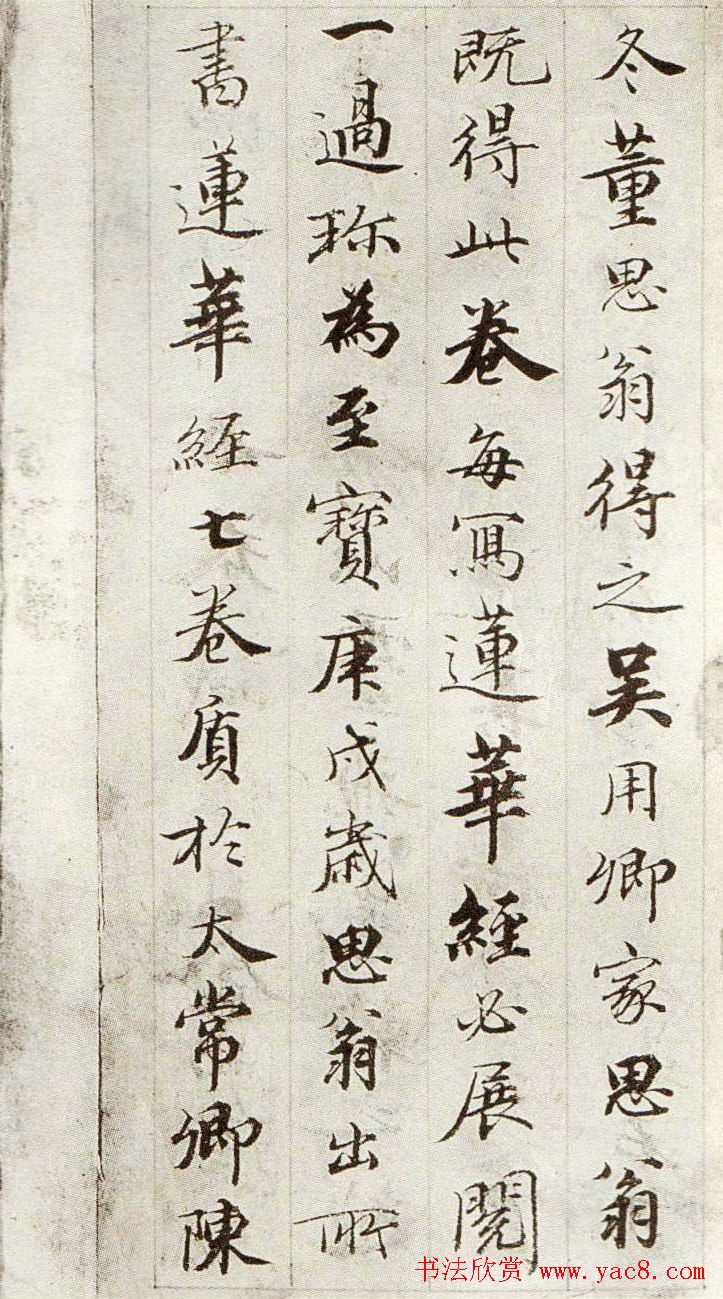 冬董思翁得之吳用卿家思翁
既得此卷每寫蓮華經必展閱
一過珎為至寶庚戌歲思翁出所
書蓮華經七卷質於太常卿陳
书法欣赏 www.yac8.com